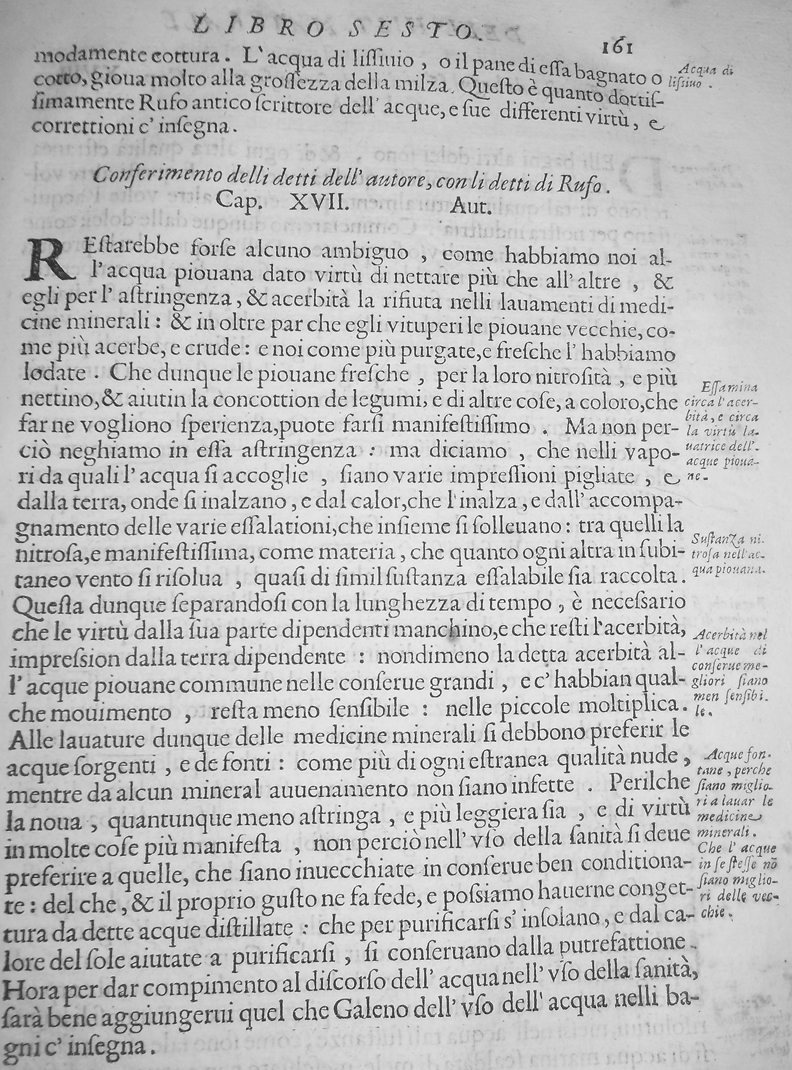 LIBRO SESTO.
161
modamente cottura. L'acqua di liſſiuio, o il pane di eſſa bagnato o
cotto, gioua molto alla groſſezza della milza. Queſto è quanto dottiſ-
ſimamente Rufo antico ſcrittore dell' acque, e ſue differenti virtù, e
correttioni c' inſegna.
Acqua di
liſſiuo.
Conferimento delli detti dell' autore, con li detti di Rufo.
Cap. XVII. Aut.
REſtarebbe forſe alcuno ambiguo, come habbiamo noi al-
l'acqua piouana dato virtù di nettare più che all' altre, &
egli per l' aſtringenza, & acerbità la rifiuta nelli lauamenti di medi-
cine minerali: & in oltre par che egli vituperi le piouane vecchie, co-
me più acerbe, e crude: e noi come più purgate, e freſche l' habbiamo
lodate. Che dunque le piouane freſche, per la loro nitroſità, e più
nettino, & aiutin la concottion de legumi, e di altre coſe, a coloro, che
far ne vogliono ſperienza, puote farſi manifeſtiſſimo. Ma non per-
ciò neghiamo in eſſa aſtringenza: ma diciamo, che nelli vapo-
ri da quali l' acqua ſi accoglie, ſiano varie impreſſioni pigliate, e
dalla terra, onde ſi inalzano, e dal calor, che l'inalza, e dall' accompa-
gnamento delle varie eſſalationi, che inſieme ſi ſolleuano: tra quelli la
nitroſa, e manifeſtiſſima, come materia, che quanto ogni altra in ſubi-
taneo vento ſi riſolua, quaſi di ſimil ſuſtanza eſſalabile ſia raccolta.
Queſta dunque ſeparandoſi con la lunghezza di tempo, è neceſsario
che le virtù dalla ſua parte dipendenti manchino, e che reſti l'acerbità,
impreſsion dalla terra dipendente: nondimeno la detta acerbità al-
l' acque piouane commune nelle conſerue grandi, e c' habbian qual-
che mouimento, reſta meno ſenſibile: nelle piccole moltiplica.
Alle lauature dunque delle medicine minerali ſi debbono preferir le
acque ſorgenti, e de fonti: come più di ogni eſtranea qualità nude,
mentre da alcun mineral auuenamento non ſiano infette. Perilche
la noua, quantunque meno aſtringa, e più leggiera ſia, e di virtù
in molte coſe più manifeſta, non perciò nell' vſo della ſanità ſi deue
preferire a quelle, che ſiano inuecchiate in conſerue ben conditiona-
te: del che, & il proprio guſto ne fa fede, e poſsiamo hauerne conget-
tura da dette acque diſtillate: che per purificarſi s' inſolano, e dal ca-
lore del ſole aiutate a purificarſi, ſi conſeruano dalla putrefattione.
Hora per dar compimento al diſcorſo dell' acqua nell' vſo della ſanità,
ſarà bene aggiungerui quel che Galeno dell' vſo dell' acqua nelli ba-
gni c' inſegna.
Eſſamina
circa l'acer-
bità, e circa
la virtù la-
uatrice dell'-
acque pioua-
ne.
Suſtanza ni-
troſa nell'ac-
qua piouana.
Acerbità nel
l' acque di
conſerue me-
gliori ſiano
men ſenſibi-
le.
Acque fon-
tane, perche
ſiano miglio-
ri a lauar le
medicine
minerali.
Che l' acque
in ſe ſteſſe nõ
ſiano miglio-
ri delle vec-
chie.